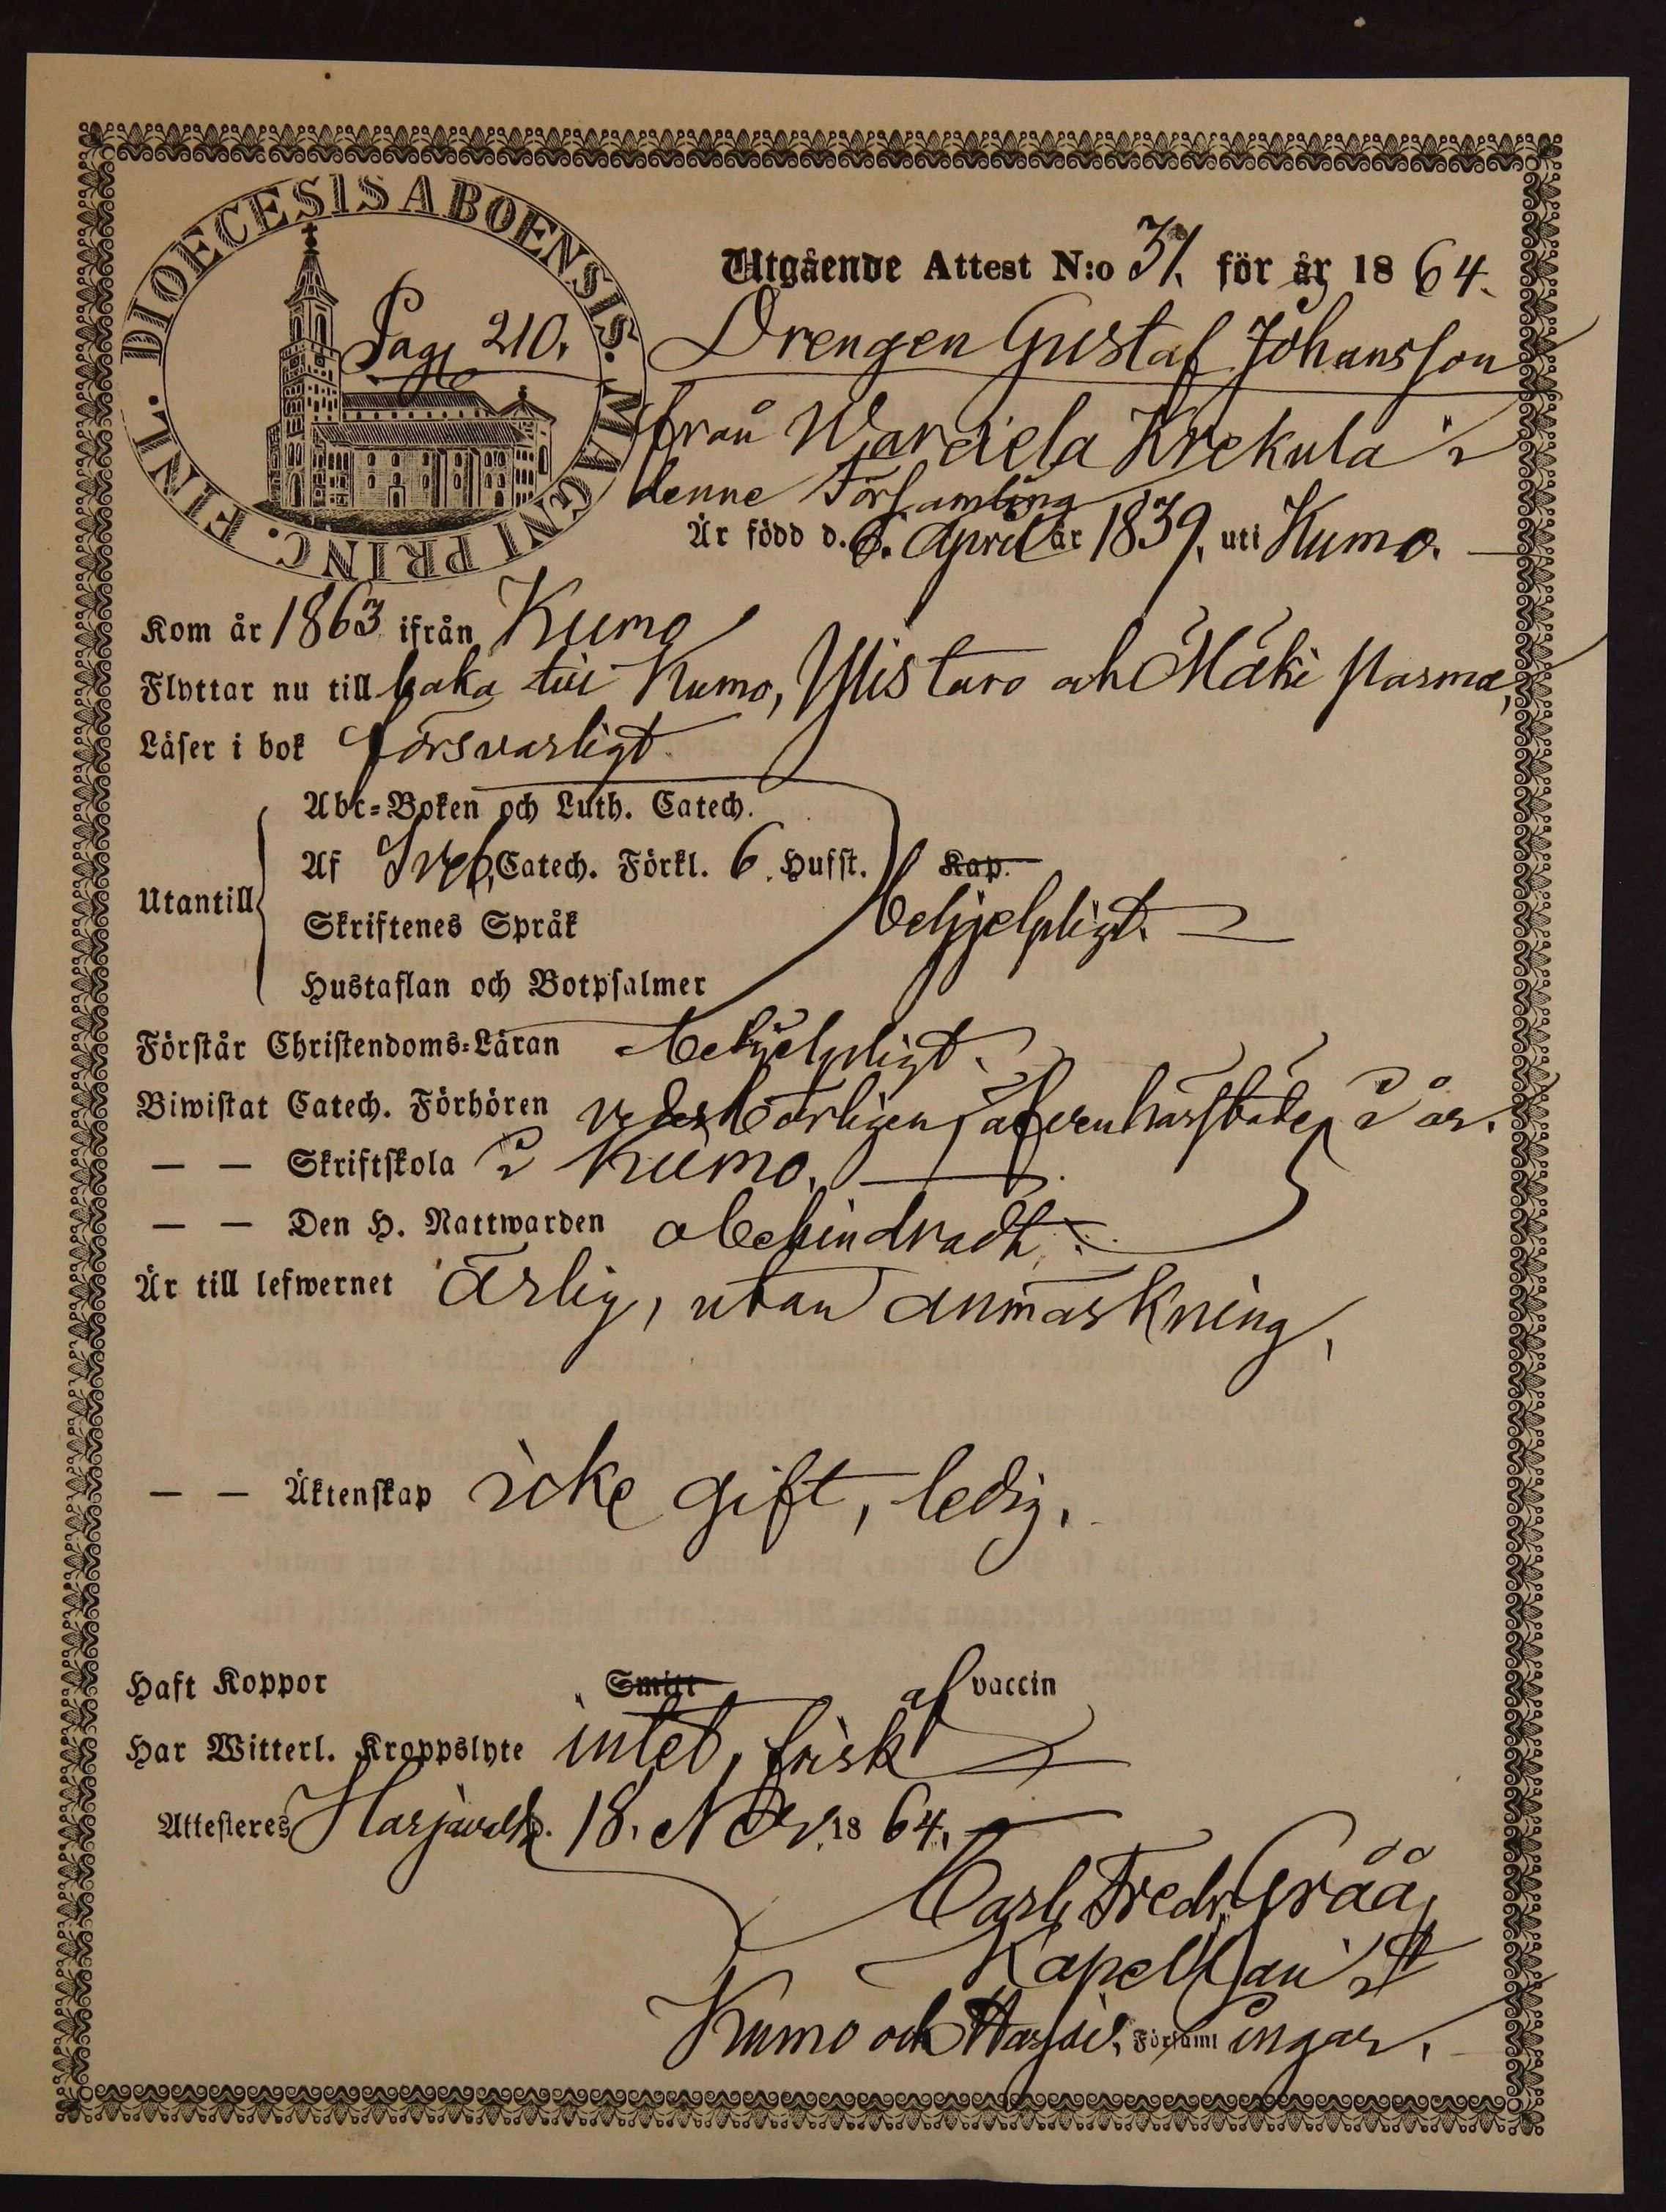 DIOECESIS ABOENSIS. MAGNI PRINC. FINL.
Pag. 210.
Utgående Attest N:o 31. för år 1864.
Drengen Gustaf Johansson
från Krekula i
denne Församling
Är född d. 6. April år 1839. uti Kumo.
Kom år 1863 ifrån Kumo
Flyttar nu till baka till Kumo, Ylistaro och Mäki
Läser i bok försvarligt
Abc-Boken och Luth. Catech.
Af Sveb. Catech. Förkl. 6. Hufst. Kap.
Utantill
Skriftenes Språk behjelpligt.
Hustaflan och Botpsalmer
Förstår Christendoms-Läran behjelpligt.
Biwistat Catech. Förhören vederbörligen, äfven härstädes i år.
— — Skriftskola i Kumo.
— — Den H. Nattwarden obehindradt.
Är till lefwernet ärlig, utan anmärkning.
— — Äktenskap icke gift, ledig.
Haft Koppor Smitt af vaccin
Har Witterl. Kroppslyte intet, frisk
Attesteres Harjavalta. 18. Nov. 1864.
Carl Fredr. Gråå,
Kapellan i
Kumo och Harjav. Församlingar.